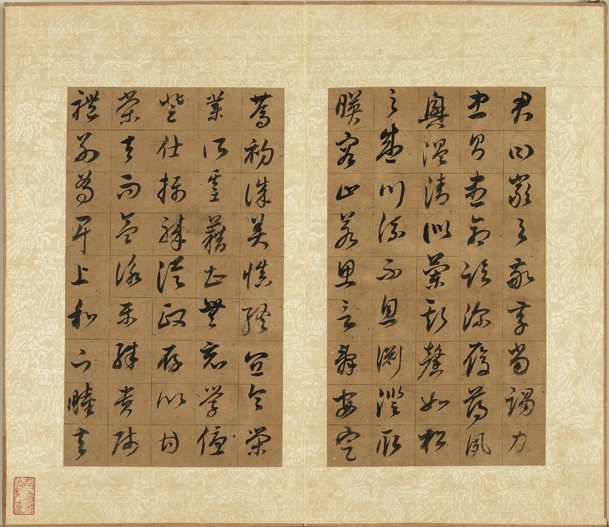 君曰嚴與敬孝當竭力
忠則盡命臨深履薄夙
興溫清似蘭斯馨如松
之盛川流不息淵澄取
映容止若思言辭安定
篤初誠美慎終宜令榮
業所基藉甚無竟學優
登仕攝職從政存以甘
棠去而益詠樂殊貴賤
禮別尊卑上和下睦夫